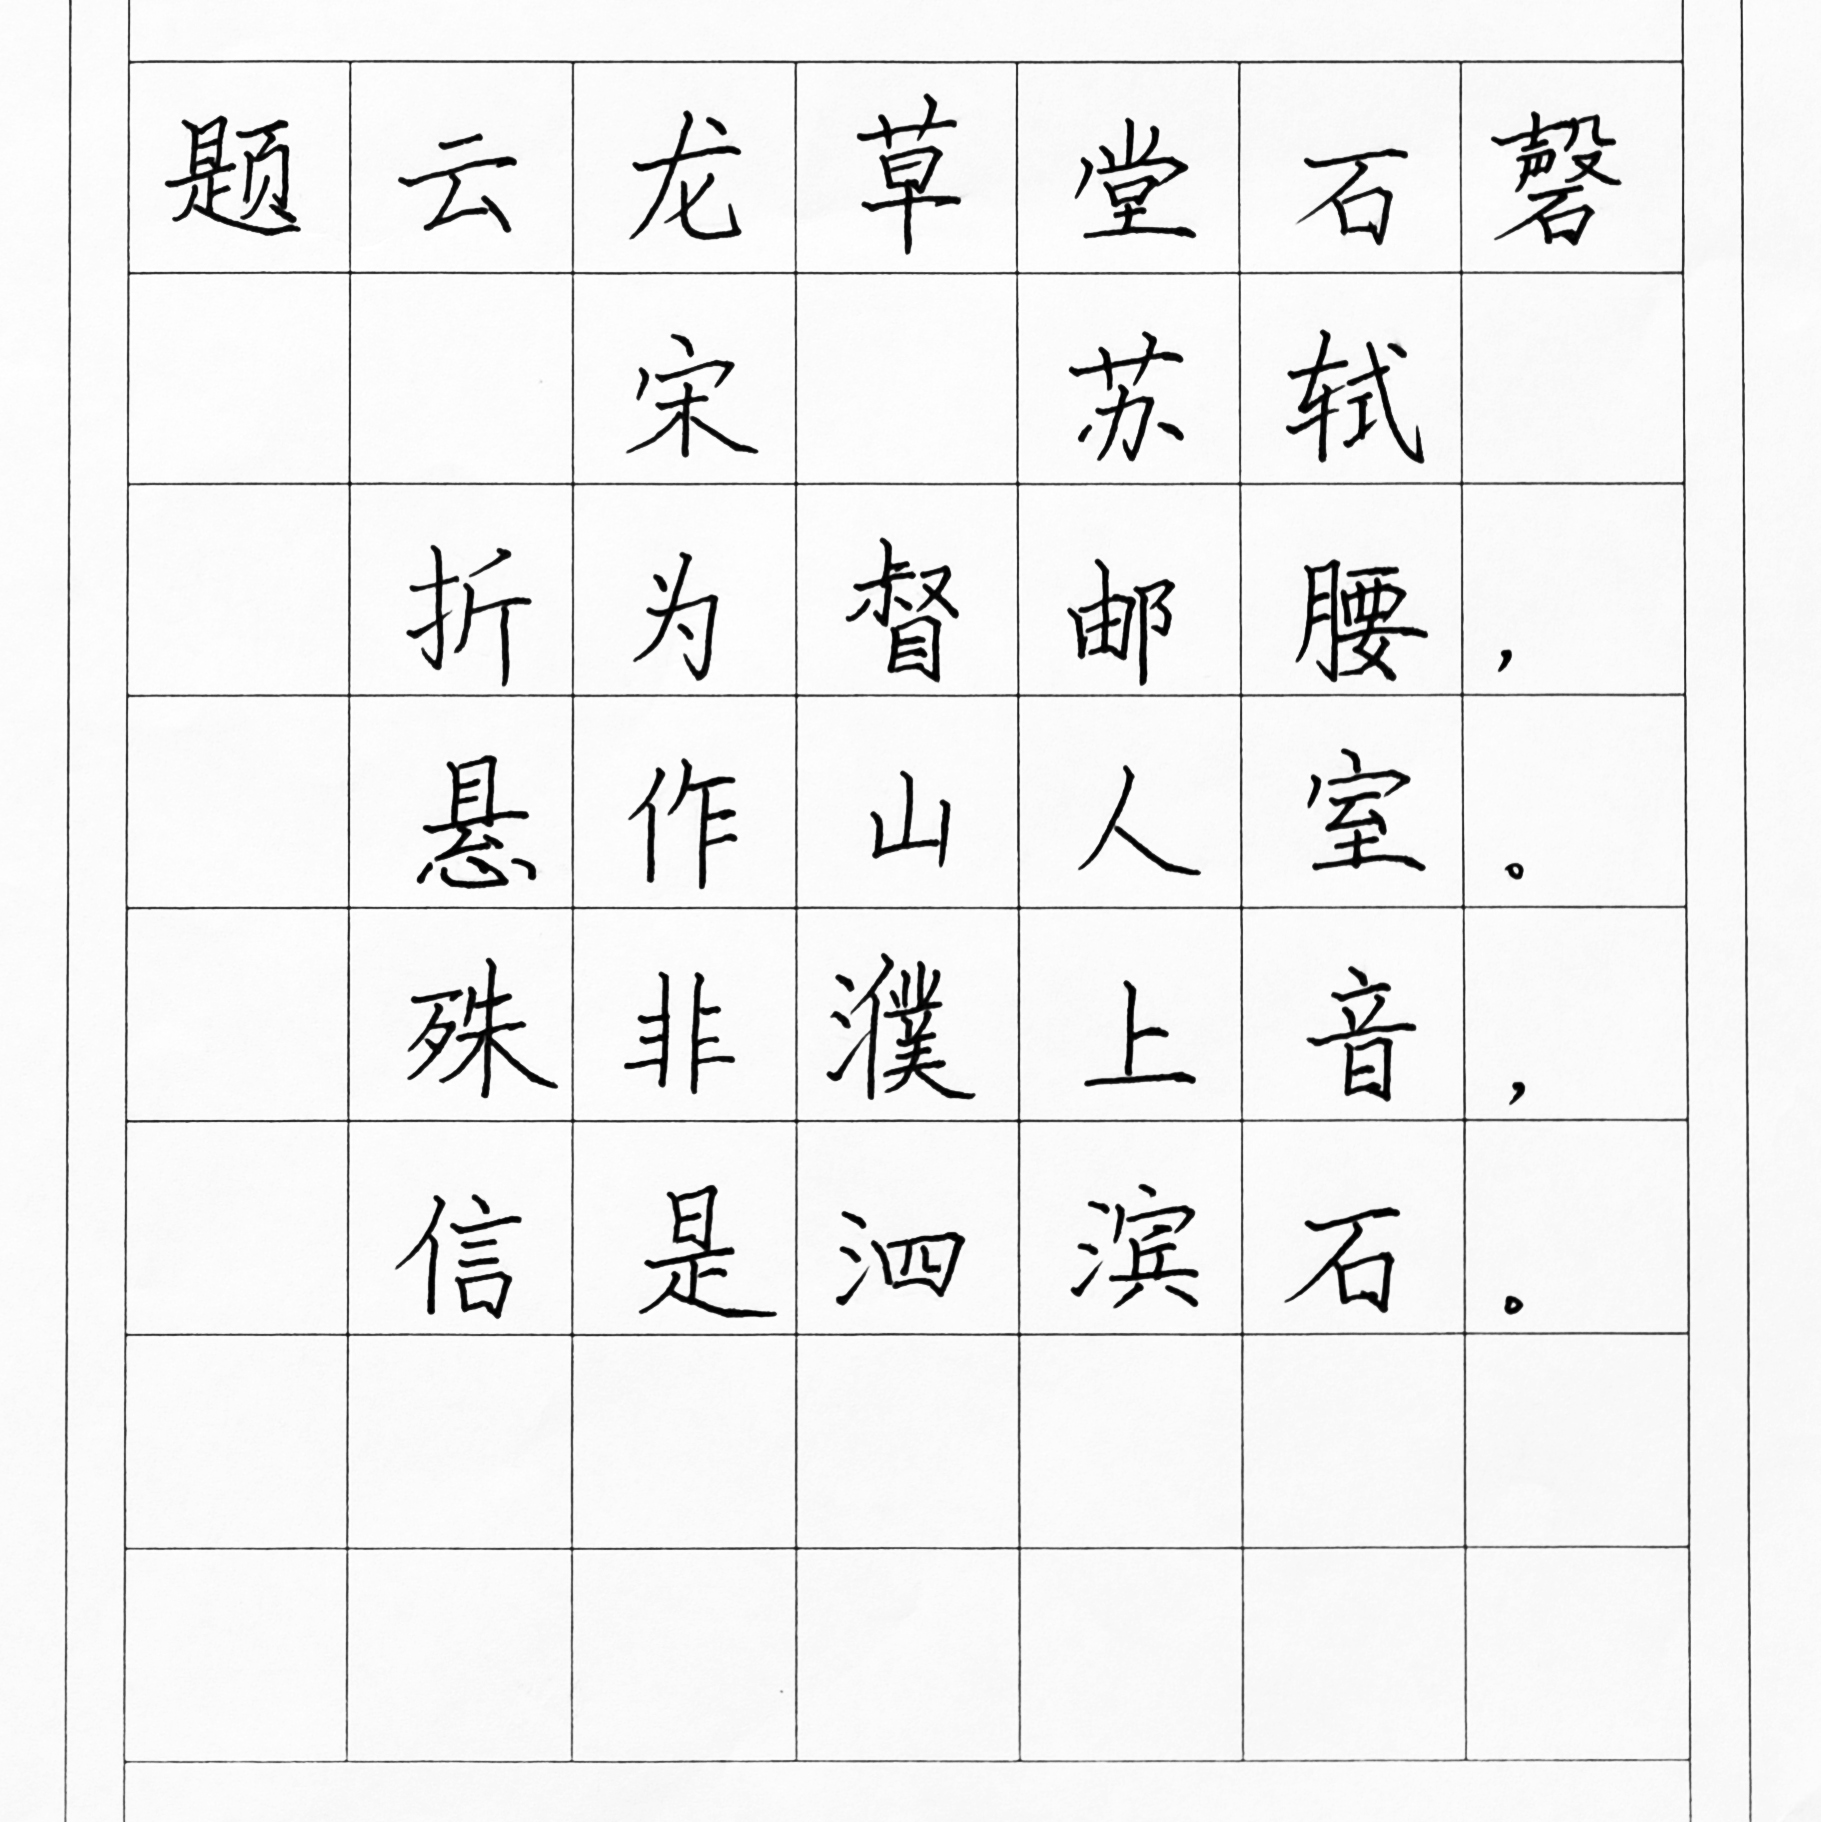 题云龙草堂石磬
宋 苏轼
折为督邮腰，
悬作山人室。
殊非濮上音，
信是泗滨石。